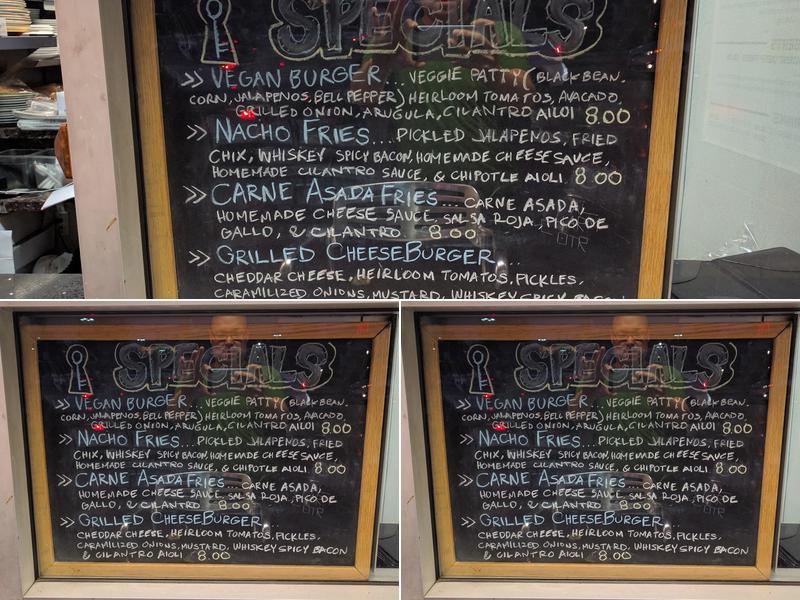 SPECIALS
>> VEGAN BURGER... VEGGIE PATTY (BLACK BEAN.
CORN, JALAPENOS, BELL PEPPER) HEIRLOOM TOMATOS, AVACADO,
GRILLED ONION, ARUGULA, CILANTRO AILOI 8.00
>> NACHO FRIES... PICKLED JALAPENOS, FRIED
CHIX, WHISKEY SPICY BACON, HOMEMADE CHEESE SAUCE,
HOMEMADE CILANTRO SAUCE, & CHIPOTLE AIOLI. 8.00
>> CARNE ASADA FRIES... CARNE ASADA,
HOMEMADE CHEESE SAUCE, SALSA ROJA, PICO DE
GALLO, & CILANTRO 8.00
>> GRILLED CHEESEBURGER...
CHEDDAR CHEESE, HEIRLOOM TOMATOS, PICKLES,
CARAMILIZED ONIONS, MUSTARD, WHISKEY SPICY BACON
SPECIALS
>> VEGAN BURGER... VEGGIE PATTY (BLACK BEAN.
CORN, JALAPENOS, BELL PEPPER) HEIRLOOM TOMATOS, AVACADO,
GRILLED ONION, ARUGULA, CILANTRO AILOI 8.00
>> NACHO FRIES... PICKLED JALAPENOS, FRIED
CHIX, WHISKEY SPICY BACON, HOMEMADE CHEESE SAUCE,
HOMEMADE CILANTRO SAUCE, & CHIPOTLE AIOLI. 8.00
>> CARNE ASADA FRIES... CARNE ASADA,
HOMEMADE CHEESE SAUCE, SALSA ROJA, PICO DE
GALLO, & CILANTRO 8.00
>> GRILLED CHEESEBURGER...
CHEDDAR CHEESE, HEIRLOOM TOMATOS, PICKLES,
CARAMILIZED ONIONS, MUSTARD, WHISKEY SPICY BACON
& CILANTRO AIOLI 8.00
SPECIALS
>> VEGAN BURGER... VEGGIE PATTY (BLACK BEAN.
CORN, JALAPENOS, BELL PEPPER) HEIRLOOM TOMATOS, AVACADO,
GRILLED ONION, ARUGULA, CILANTRO AILOI 8.00
>> NACHO FRIES... PICKLED JALAPENOS, FRIED
CHIX, WHISKEY SPICY BACON, HOMEMADE CHEESE SAUCE,
HOMEMADE CILANTRO SAUCE, & CHIPOTLE AIOLI. 8.00
>> CARNE ASADA FRIES... CARNE ASADA,
HOMEMADE CHEESE SAUCE, SALSA ROJA, PICO DE
GALLO, & CILANTRO 8.00
>> GRILLED CHEESEBURGER...
CHEDDAR CHEESE, HEIRLOOM TOMATOS, PICKLES,
CARAMILIZED ONIONS, MUSTARD, WHISKEY SPICY BACON
& CILANTRO AIOLI 8.00